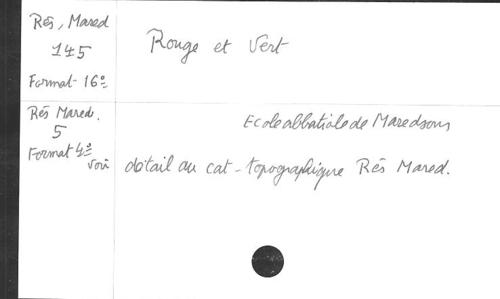 Rés, Mared
145
Format 16º
Rouge et Vert
Rés Mared.
5
Format 4º
voir
Ecole abbatiale de Maredsous
détail au cat-topographique Rés Mared.